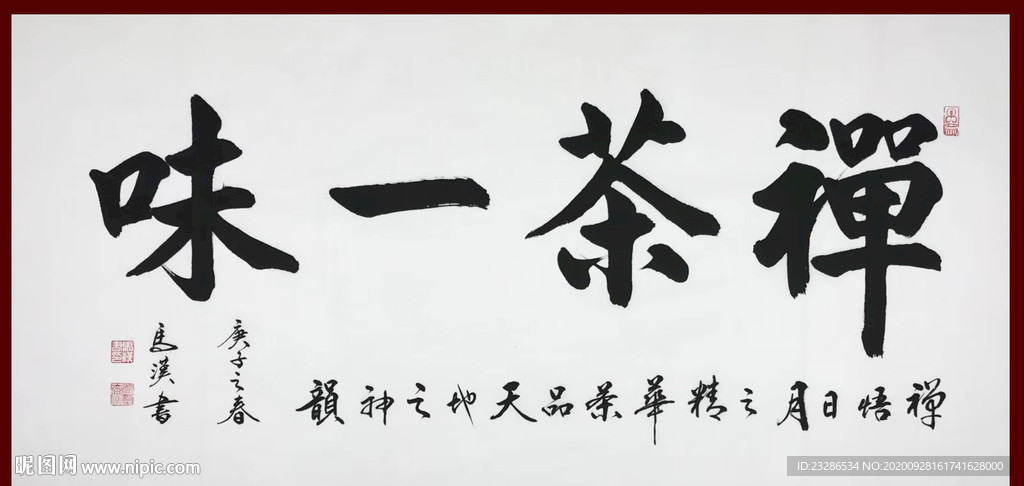 禪茶一味
禅悟日月之精華茶品天地之神韻
庚子之春
馬漢書
昵图网 www.nipic.com
ID:23286534 NO:20200928161741628000